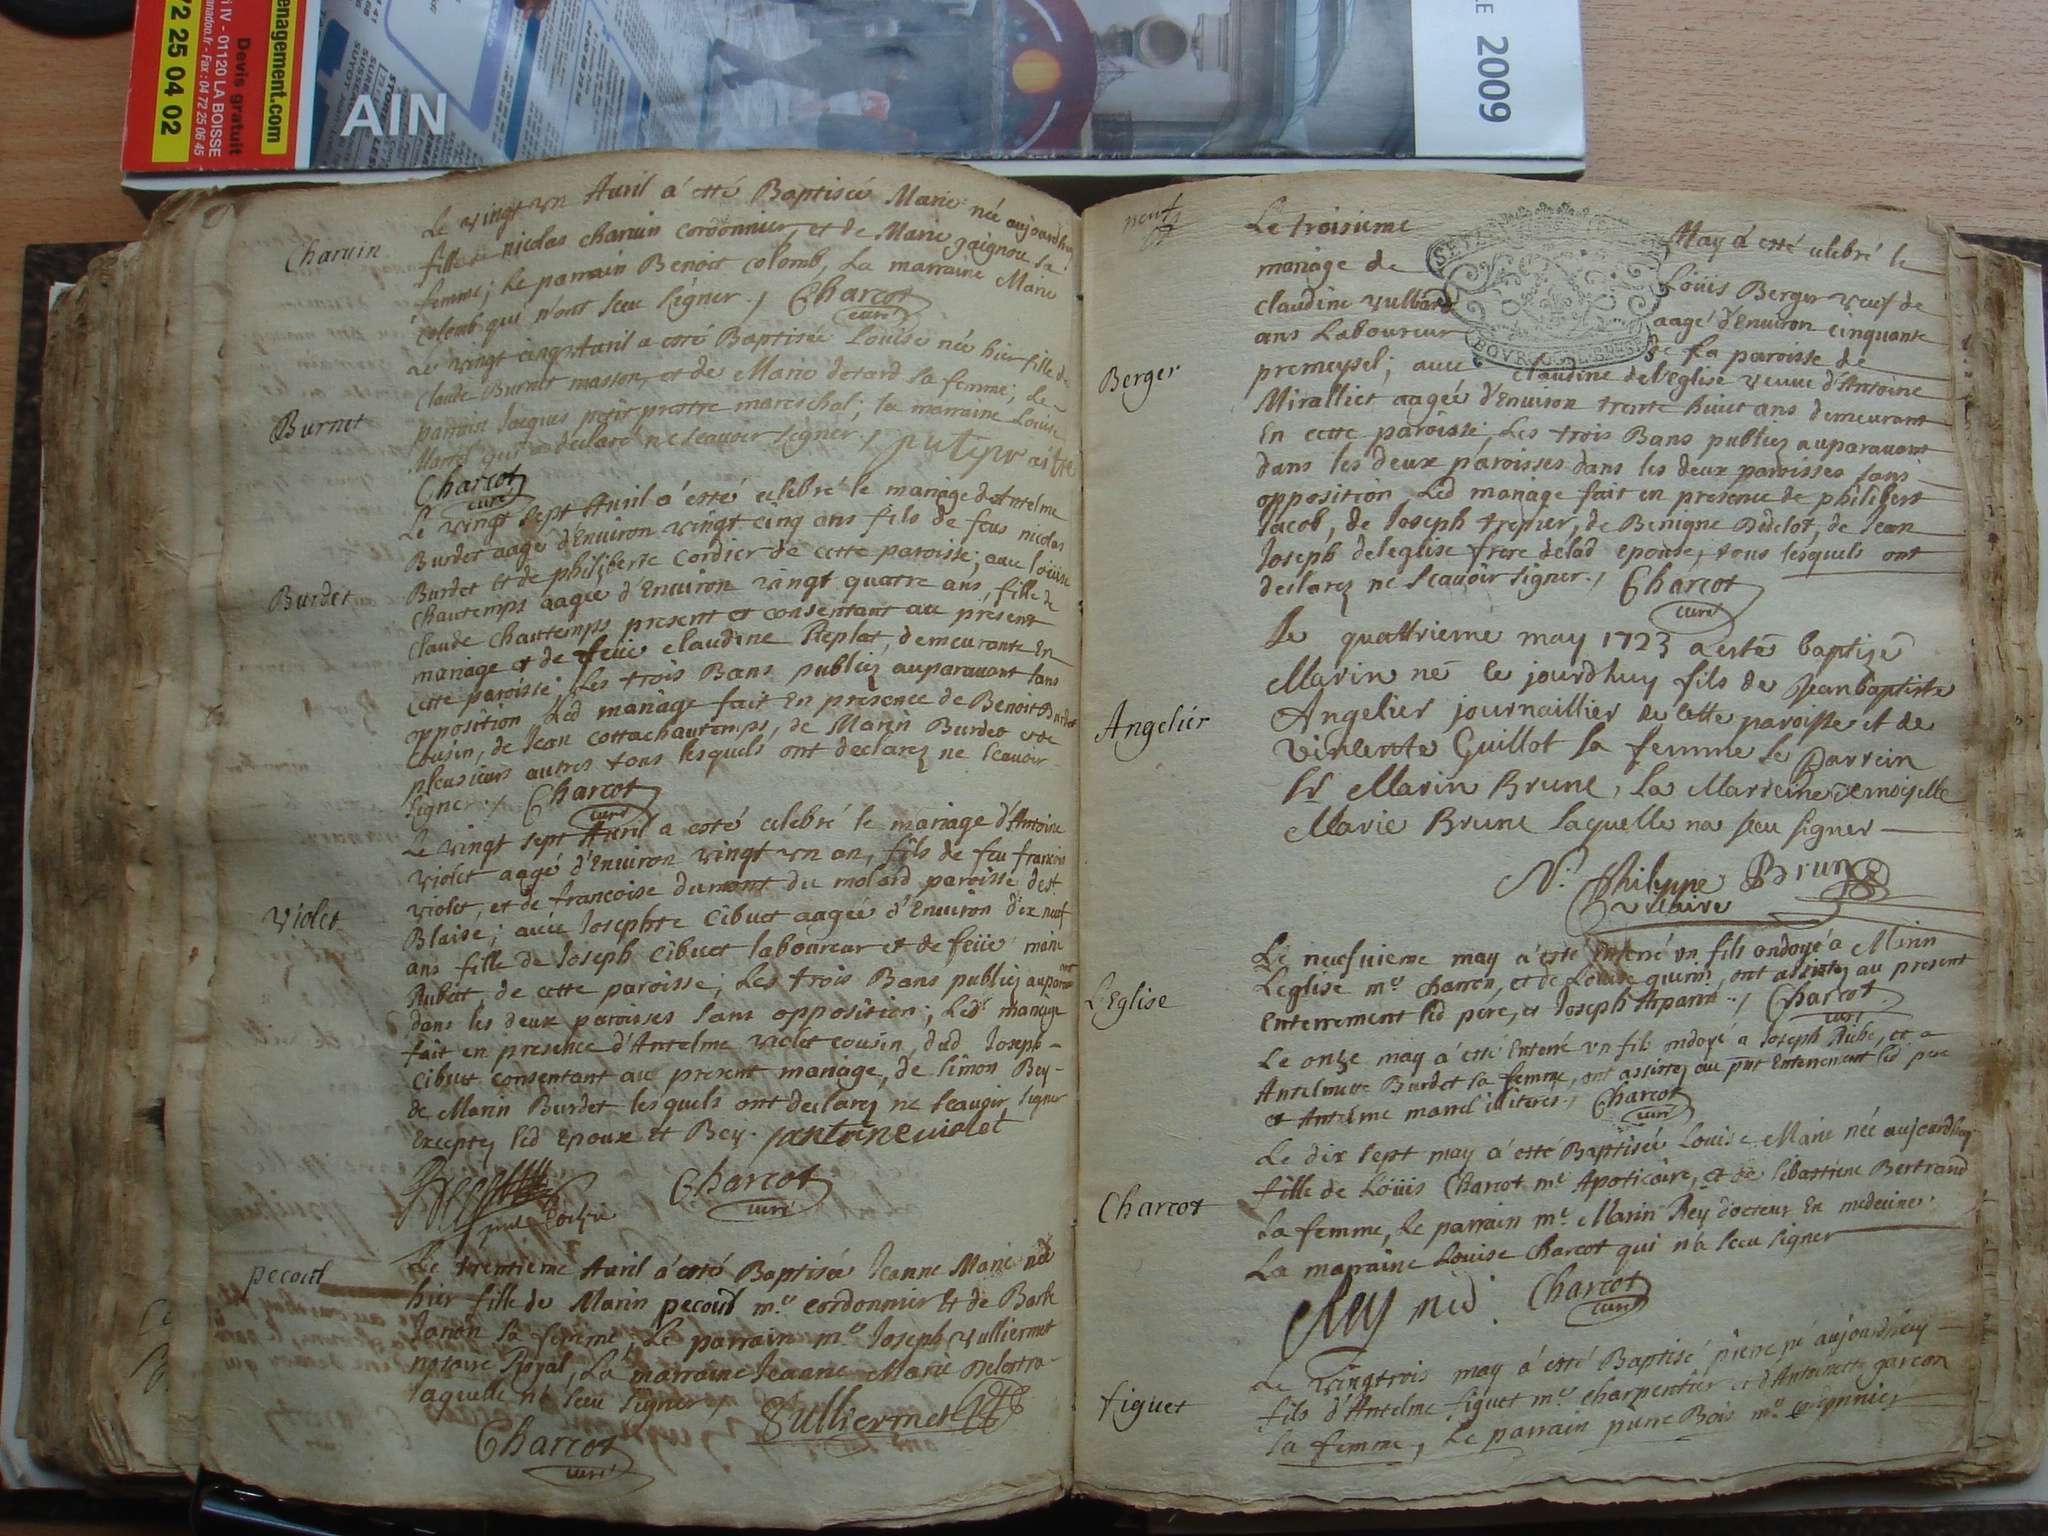 enagement.com
Devis gratuit
IV - 01120 LA BOISSE
Fax : 04 72 25 06 45
72 25 04 02
AIN
LE 2009
Charuin
Le vingt un Auril a esté Baptisée Marie née aujourdhuy
fille de nicolas charuin cordonnier, et de Marie gaignou sa
femme; le parrain Benoit colomb, La marraine Marie
colomb qui n'ont sceu signer./ Charcot
curé
Burnet
Le vingt cinq Auril a esté Baptisée Louise née hier fille de
Claude Burnet masson, et de Marie dotard sa femme; Le
parrain Jacques petit prestre mareschal; la marraine Louise
qui declaré ne sceauoir signer./
Charcot
curé
Burdet
Le vingt sept Auril a esté celebré le mariage d'Antelme
Burdet aagé d'Enuiron vingt cinq ans fils de feus nicolas
Burdet et de philiberte cordier de cette paroisse; auec louise
chautemps aagée d'Enuiron vingt quatre ans, fille de
claude chautemps present et consentant au present
mariage et de feüe claudine Replat, demeurante En
cette paroisse, Les trois Bans publiez auparauant sans
opposition Led mariage fait En presence de Benoit Burdet
Cousin, de Jean cottachautemps, de Marin Burdet et de
plusieurs autres tous lesquels ont declarez ne sceauoir
signer./ Charcot
curé
Violet
Le vingt sept Auril a esté celebré le mariage d'Antoine
violet aagé d'Enuiron vingt vn an, fils de feu francois
violet, et de francoise dumont du molard paroisse de st
Blaise; auec Josephte Cibuet aagée d'Enuiron dix neuf
ans fille de Joseph Cibuet laboureur et de feüe marie
Rubat, de cette paroisse; Les trois Bans publiez auparauant
dans les deux paroisses sans opposition; Led mariage
fait en presence d'Antelme violet cousin, dud Joseph
Cibuet consentant au present mariage, de simon Bey
de Marin Burdet lesquels ont declarez ne sceauoir signer
Exceptez led Epoux et Bey. /antoine violet
Charcot
curé
pecoud
Le trentieme Auril á esté Baptisée Jeanne Marie née
hier fille de Marin pecoud m.e cordonnier et de Barbe
Janon sa femme, Le parrain m.e Joseph Vulliermet
notaire Royal, La marraine Jeanne Marie
laquelle n'a sceu signer /
Vulliermet
Charcot
curé
neuf
Berger
Le troisieme May á esté celebré le
mariage de Loüis Berger veuf de
claudine vulliard aagé d'Enuiron cinquante
ans Laboureur de la paroisse de
premeysel; auec claudine de l'Eglise veuue d'Antoine
Miralliet aagée d'Enuiron trente huict ans demeurant
En cette paroisse, Les trois Bans publiez auparauant
dans les deux paroisses dans les deux paroisses sans
opposition Led mariage fait en presence de philibert
Jacob, de Joseph trepier, de Benigne Didelot, de Jean
Joseph deleglise frere delad epouse, tous lesquels ont
declarez ne sceauoir signer./ Charcot
curé
Angelier
Le quattrieme may 1723 a esté baptizé
Marin né ce jourdhuy fils de Jean baptiste
Angelier journaillier de cette paroisse et de
vincente Guillot sa femme le Parrein
Sr Marin Brune, La Marreine Demoiselle
Marie Brune laquelle na sceu signer
N. Philippe Brune
vicaire
L'Eglise
Le neufuieme may á esté Enterré vn fils ondoyé a Marin
Leglise m.e charron, et de Louise, ont assistez au present
Enterrement led pere, et Joseph Aparin./ Charcot
curé
Le onze may á esté Enterré vn fils ondoyé a Joseph Aubé, et a
Antelmette Burdet sa femme, ont assistez au pnt Enterrement led pere
et Antelme martel illiterés./ Charcot
curé
Charcot
Le dix sept may á esté Baptisée Louise Marie née aujourdhuy
fille de Loüis Charcot m.e Apoticaire, et de sébastiene Bertrand
sa femme, Le parrain m.e Marin Rey docteur En medecine
La marraine Louise Charcot qui n'a sceu signer
Rey med. Charcot
curé
figuet
Le Vingtrois may á esté Baptisé pierre né aujourdhuy
fils d'Antelme figuet m.e charpentier et d'Antoinette garcon
sa femme, Le parrain pierre Bois m.e